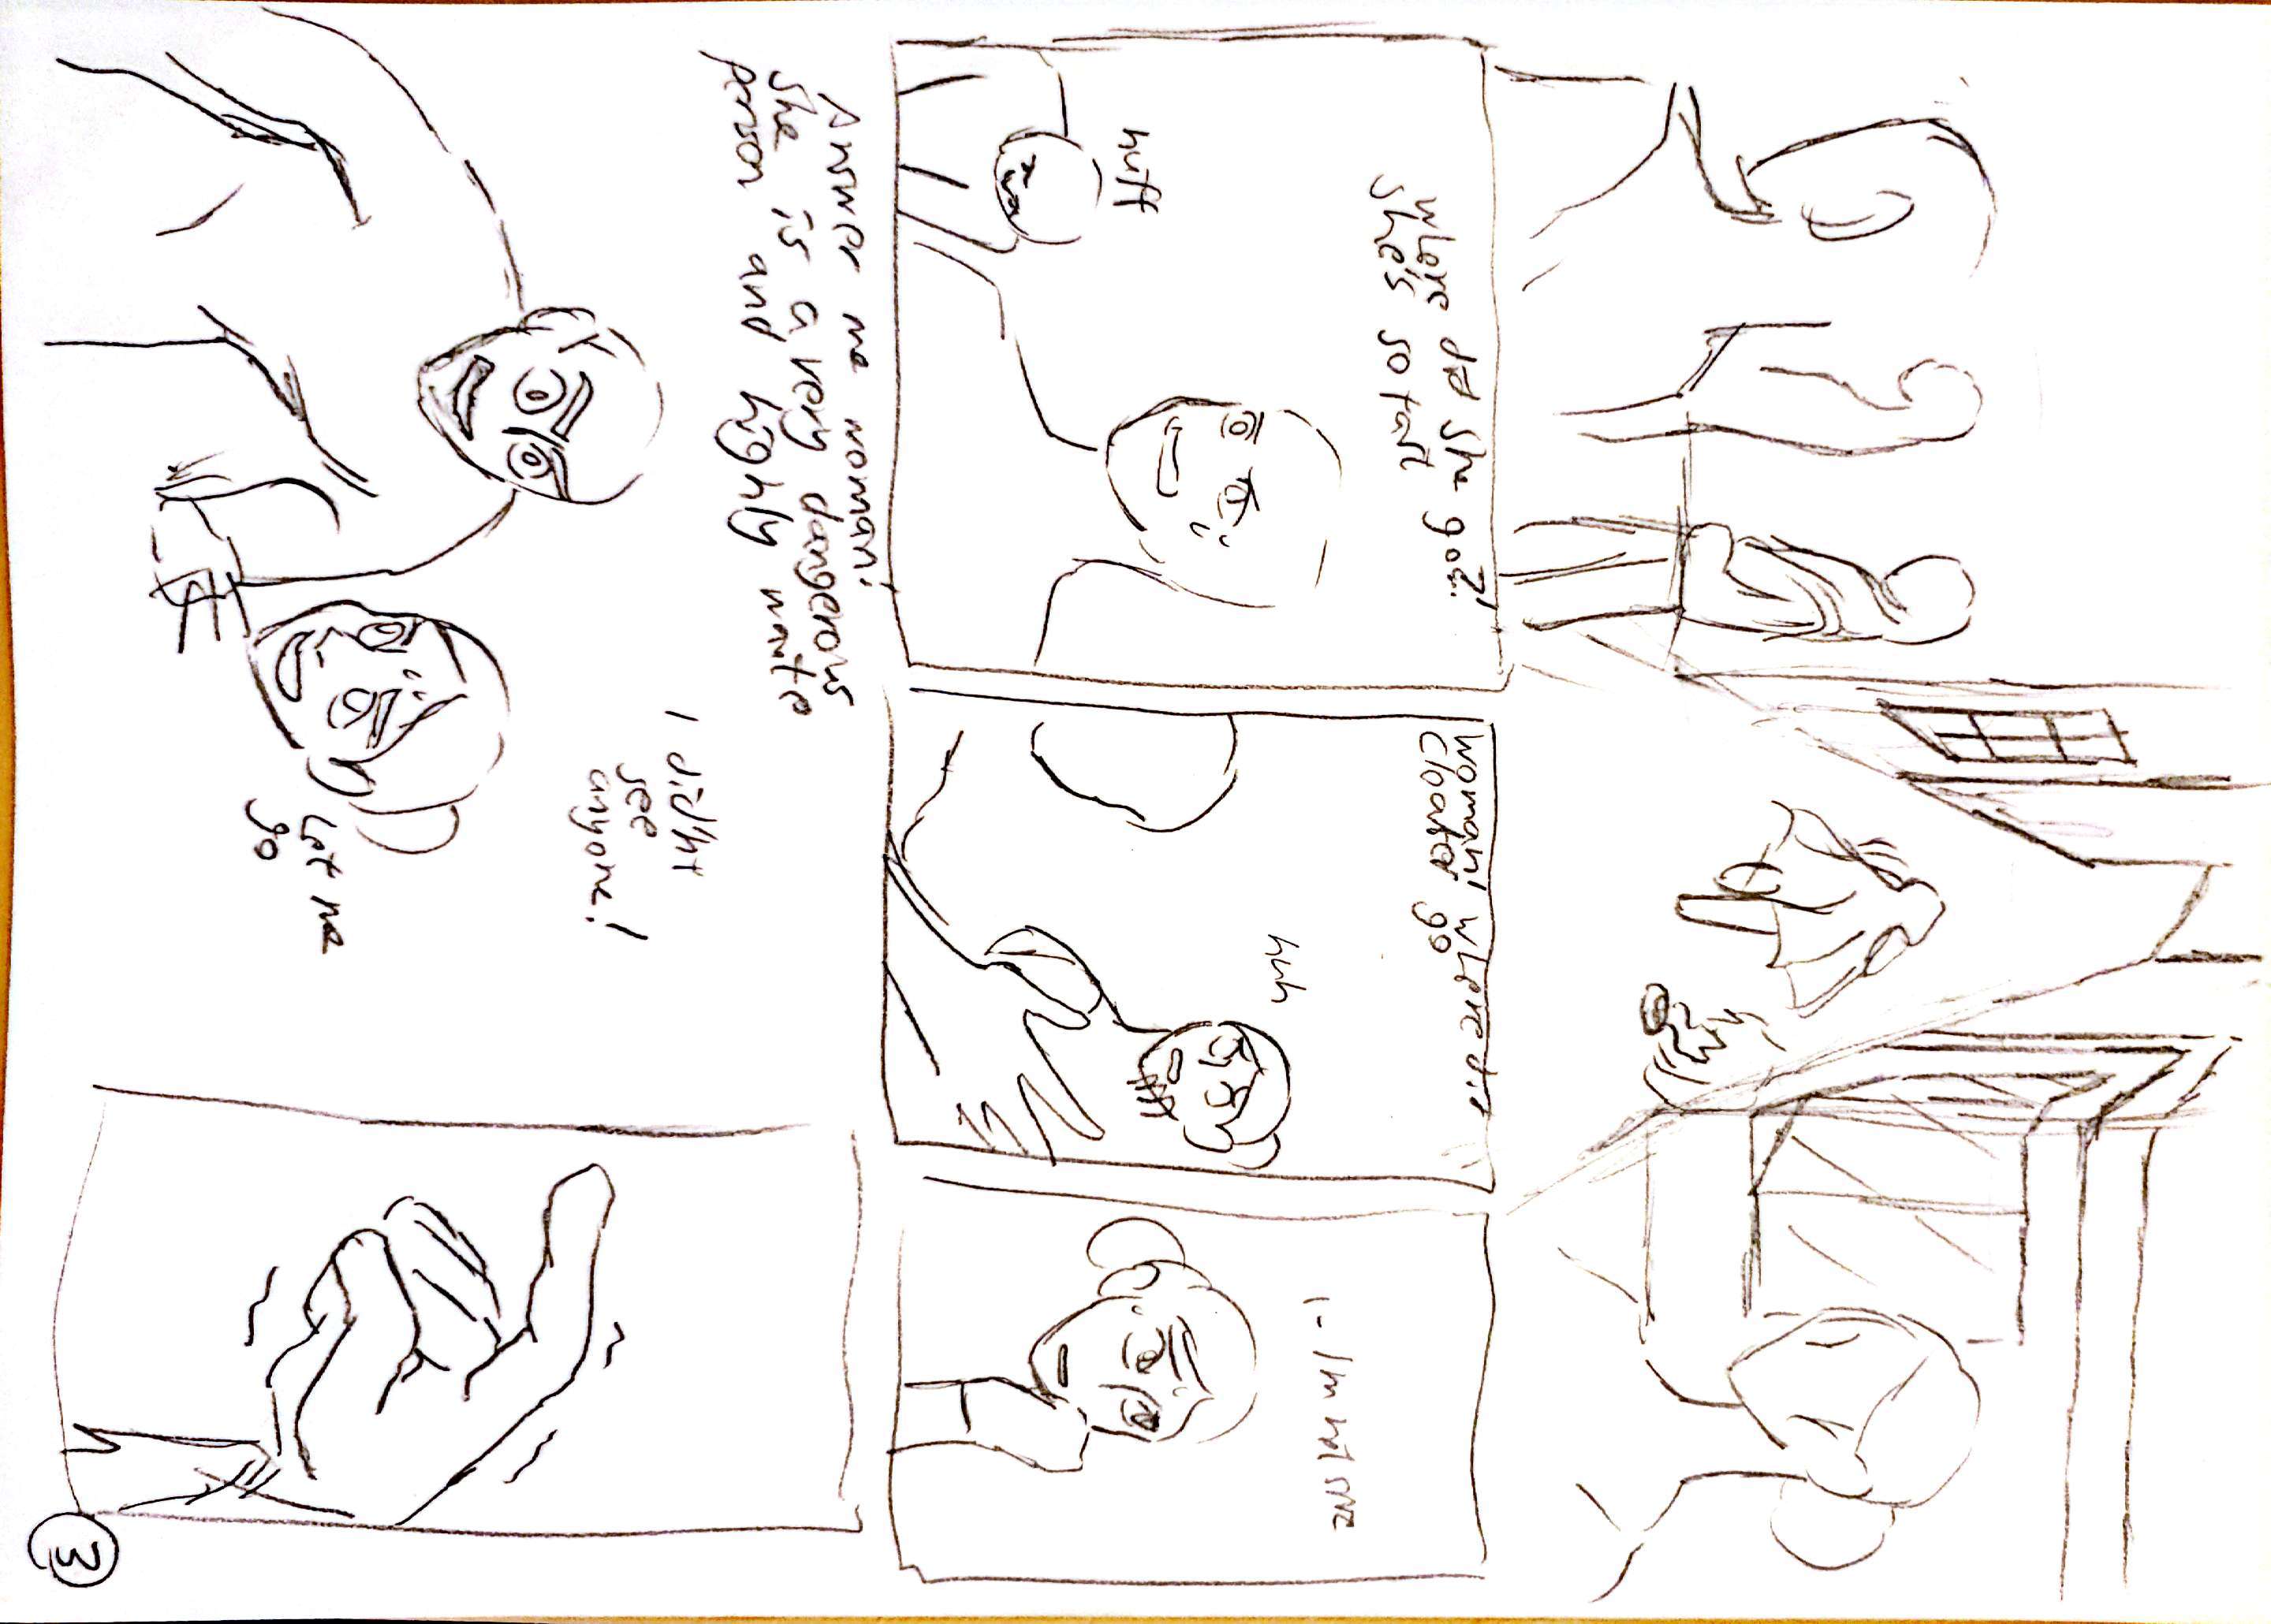 where did she go?!
She's so fast
huff
Woman! where did
Cloaker go
huh
I- Im not sure
Answer me woman!
she is a very dangerous
person and highly wante
I did'nt
see
anyone!
Let me
go
3